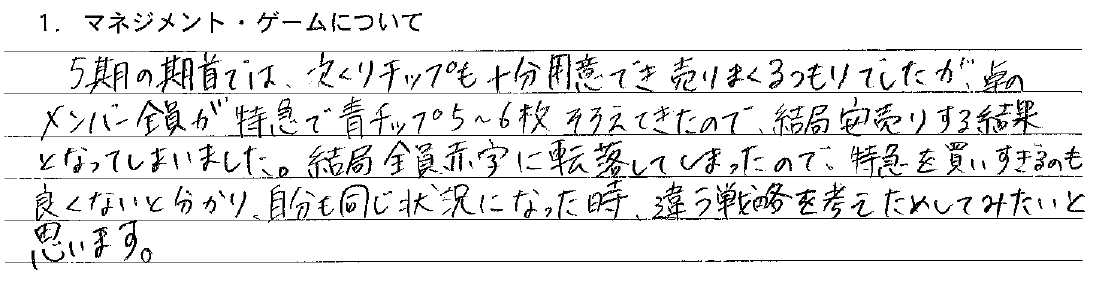 1. マネジメント・ゲームについて
5期の期首では、次くりチップも十分用意でき売りまくるつもりでしたが、卓の
メンバー全員が特急で青チップ5～6枚そろえてきたので、結局安売りする結果
となってしまいました。結局全員赤字に転落してしまったので、特急を買いすぎるのも
良くないと分かり、自分も同じ状況になった時、違う戦略を考えためしてみたいと
思います。